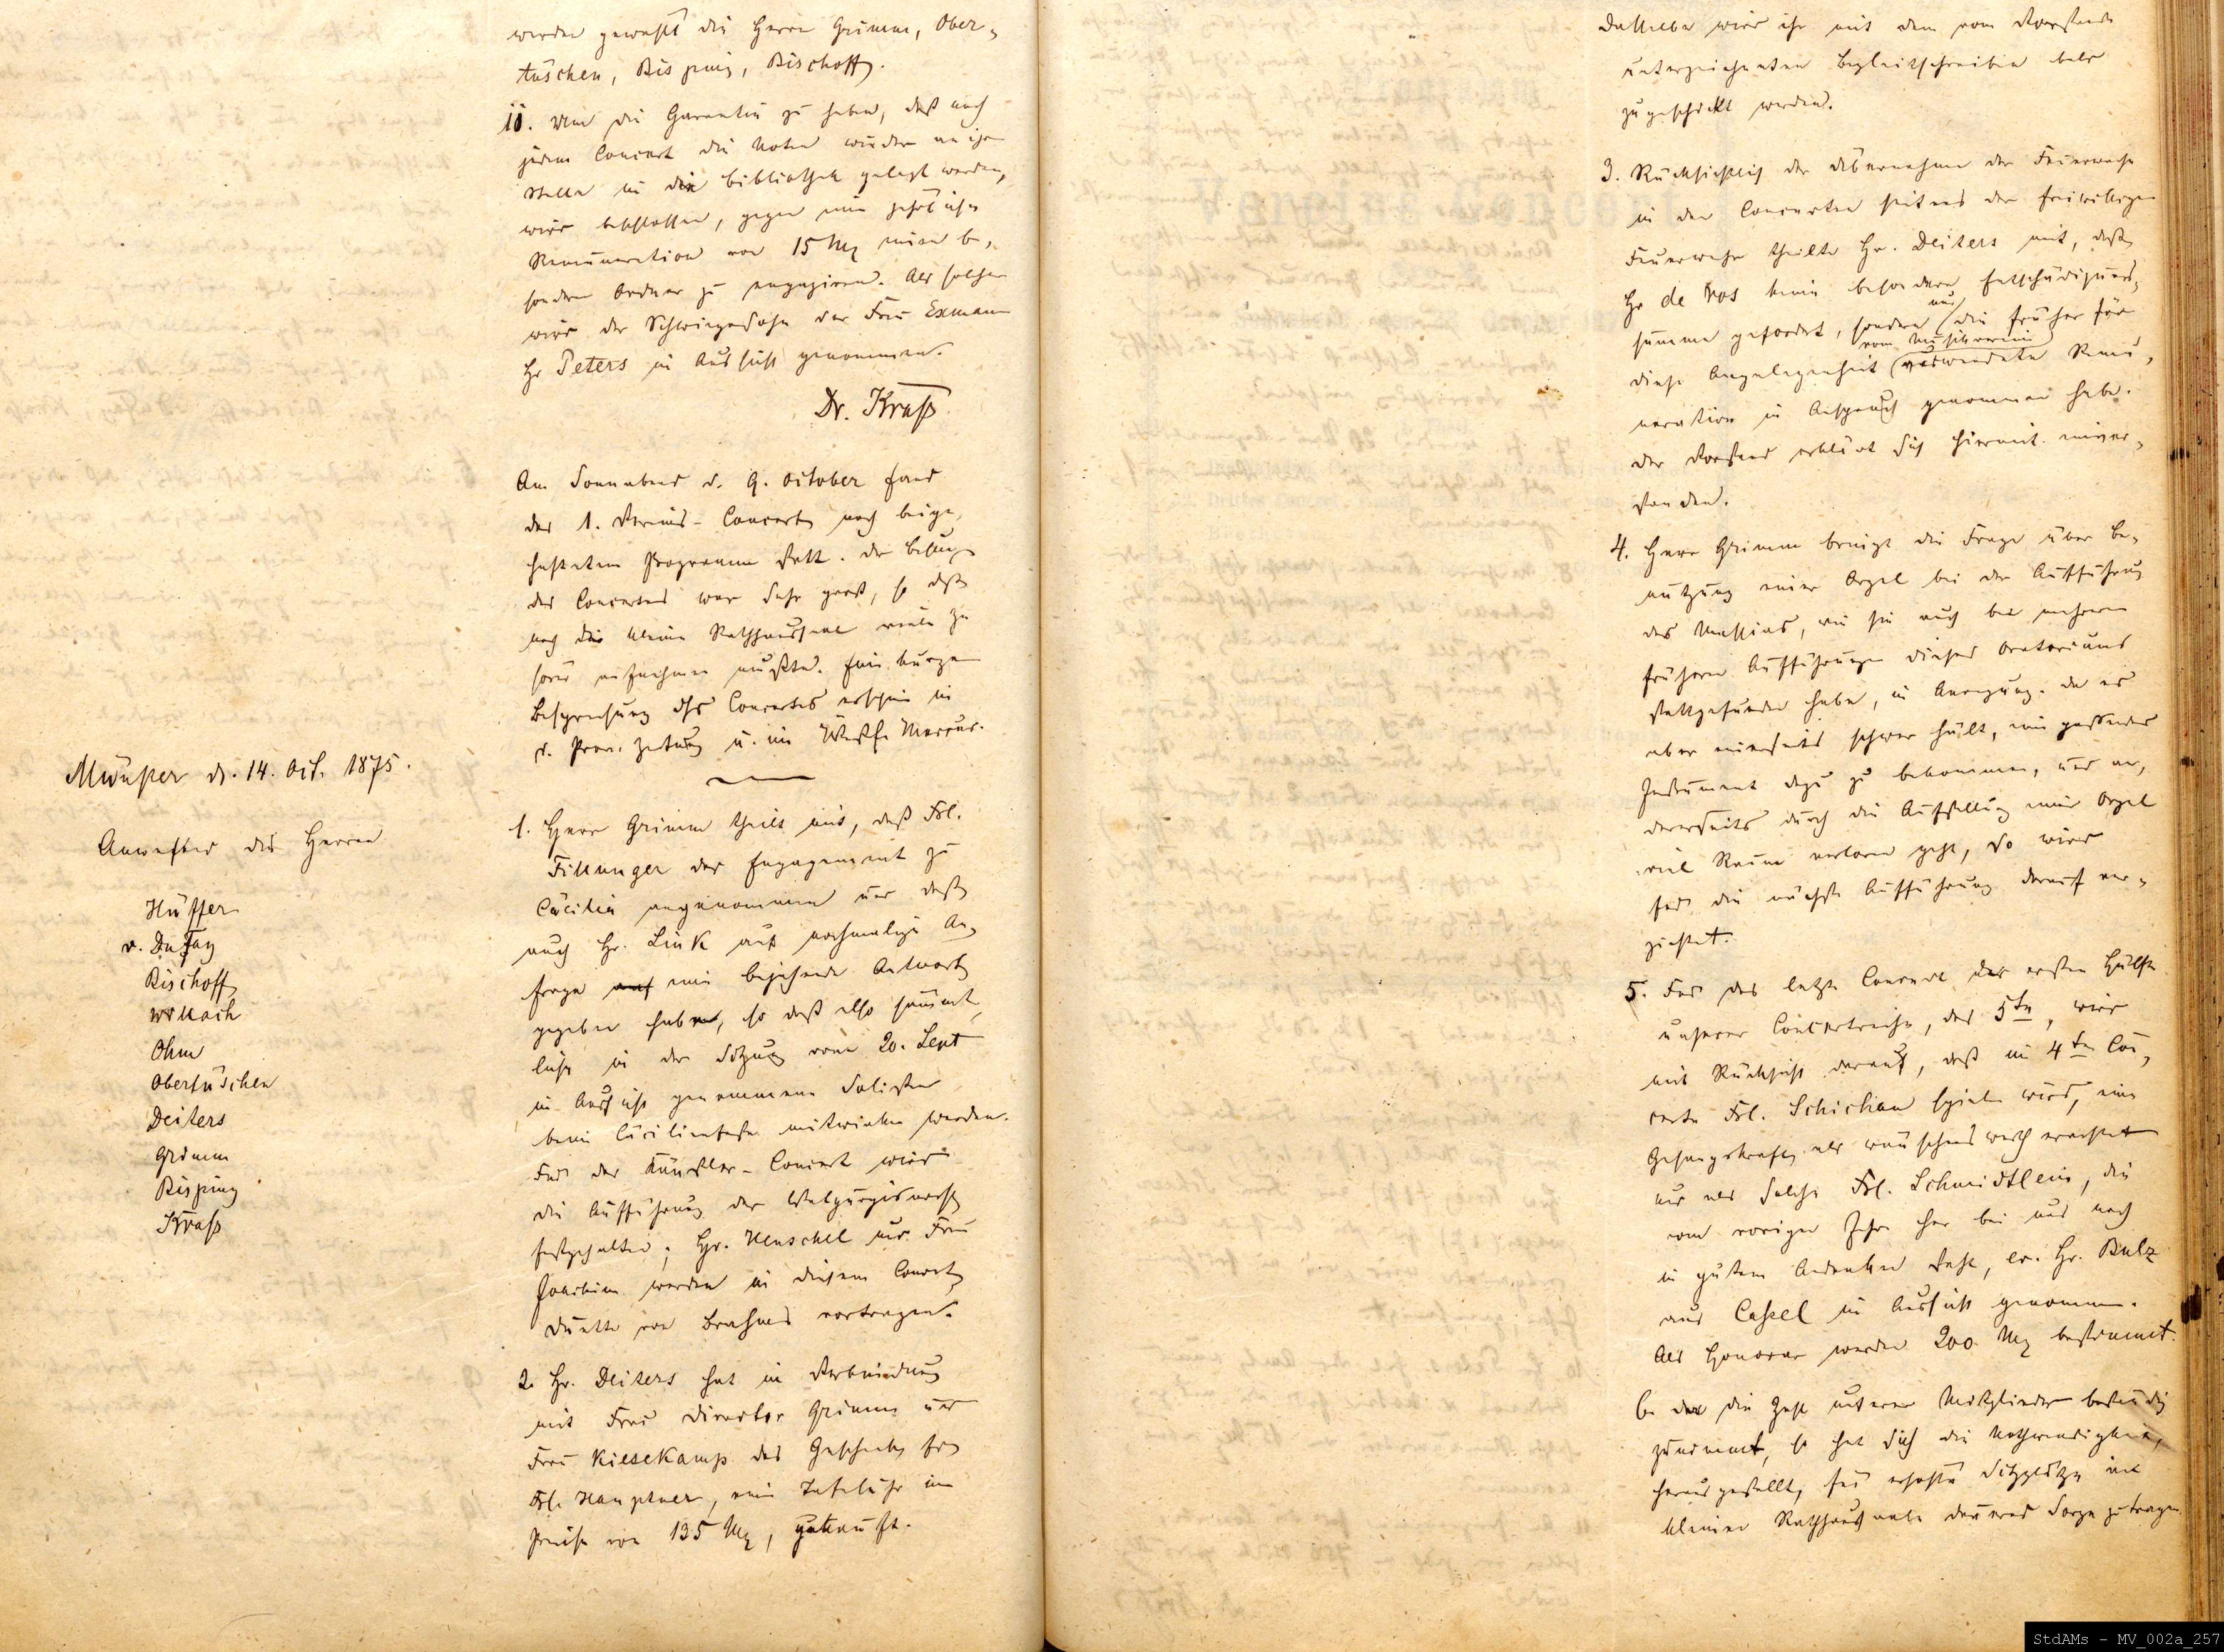 werden gewählt die Herrn Grimm, Ober-
tüschen, Bisping, Bischoff.
10. Um die Garantie zu haben, daß nach
jedem Concert die Noten wieder an ihre
Stelle in die Bibliothek gelegt werden,
wird beschlossen, gegen eine jährliche
Remuneration von 15 Mk einen be-
sondern Ordner zu engagiren. Als solcher
wird der Schwiegersohn der Frau Exmann
Hr Peters in Aussicht genommen.
Dr. Kraß
Am Sonnabend d. 9. October fand
das 1. Vereins-Concert nach beige-
heftetem Programm statt. Der Besuch
des Concertes war sehr groß, so daß
noch der kleine Rathhaussaal viele Zu-
hörer aufnehmen mußte. Eine kurze
Besprechung des Concertes erschien in
d. Prov. Zeitung u. im Westf. Mercur.
Münster d. 14. Oct. 1875.
Anwesend die Herren
Hüffer
v. DuFay
Bischoff
Wilkach
Ohm
Obertüschen
Deiters
Grimm
Bisping
Kraß
1. Herr Grimm theilt mit, daß Frl.
Fillunger das Engagement zu
Cäcilia angenommen und daß
auch Hr. Link auf nochmalige An-
frage auf eine bejahende Antwort
gegeben habe, so daß also sämmt-
liche in der Sitzung vom 20. Sept
in Aussicht genommene Solisten
beim Cäcilienfeste mitwirken werden.
Für das Künstler-Concert wird
die Aufführung der Walpurgisnacht
festgehalten; Hr. Henschel und Frau
Joachim werden in diesem Concert
Duette von Brahms vortragen.
2. Hr. Deiters hat in Verbindung
mit Frau Director Grimm und
Frau Kiesekamp das Geschenk für
Frl. Hauptner, eine Tafeluhr im
Preise von 135 Mk, gekauft.
Dasselbe wird ihr mit dem vom Vorstande
unterzeichneten Begleitschreiben bald
zugeschickt werden.
3. Rücksichtlich der Übernahme der Feuerwache
in den Concerten seitens der freiwilligen
Feuerwehr theilte Hr. Deiters mit, daß
Hr de Ros keine besondere Entschädigungs-
summe gefordert, sondern nur die früher für
diese Angelegenheit vom Musikverein verwendete Remu-
neration in Anspruch genommen habe.
Der Vorstand erklärt sich hiermit einver-
standen.
4. Herr Grimm bringt die Frage über Be-
nutzung einer Orgel bei der Aufführung
des Messias, wie sie auch bei mehreren
frühern Aufführungen dieses Oratoriums
stattgefunden habe, in Anregung. Da es
aber einerseits schwer hält, ein passendes
Instrument dazu zu bekommen, und an-
dererseits durch die Aufstellung einer Orgel
viel Raum verloren geht, so wird
für die nächste Aufführung darauf ver-
zichtet.
5. Für das letzte Concert der ersten Hälfte
unserer Concertreihe, das 5te, wird
mit Rücksicht darauf, daß im 4ten Con-
certe Frl. Schichau spielen wird, eine
Gesangskraft als wünschenswerth erachtet
und als solche Frl. Schmidtlein, die
vom vorigen Jahre her bei uns noch
in gutem Andenken steht, ev. Hr. Bulz
aus Cassel in Aussicht genommen.
Als Honorar werden 200 Mk bestimmt.
6. Da die Zahl unserer Mitglieder beständig
zunimmt, so hat sich die Nothwendigkeit,
herausgestellt, für erhöhte Sitzplätze im
kleinen Rathhaussaale dauernd Sorge zu tragen.
StdAMs - MV_002a_257